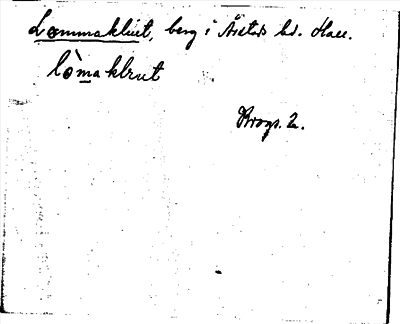 Lommaklint, berg i Årstads hd. Hall.
lòma klrut
Brogs. 2.